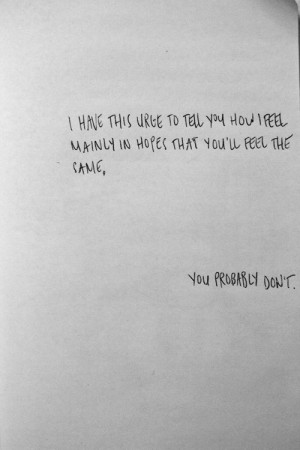 I HAVE THIS URGE TO TELL YOU HOW I FEEL
MAINLY IN HOPES THAT YOU'LL FEEL THE
SAME.
YOU PROBABLY DON'T.